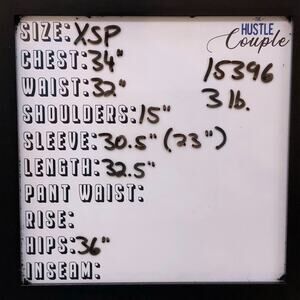 SIZE: XSP
THE
HUSTLE
Couple
CHEST: 34"
15396
WAIST: 32"
3 lb.
SHOULDERS: 15"
SLEEVE: 30.5" (23")
LENGTH: 32.5"
PANT WAIST:
RISE:
HIPS: 36"
INSEAM: